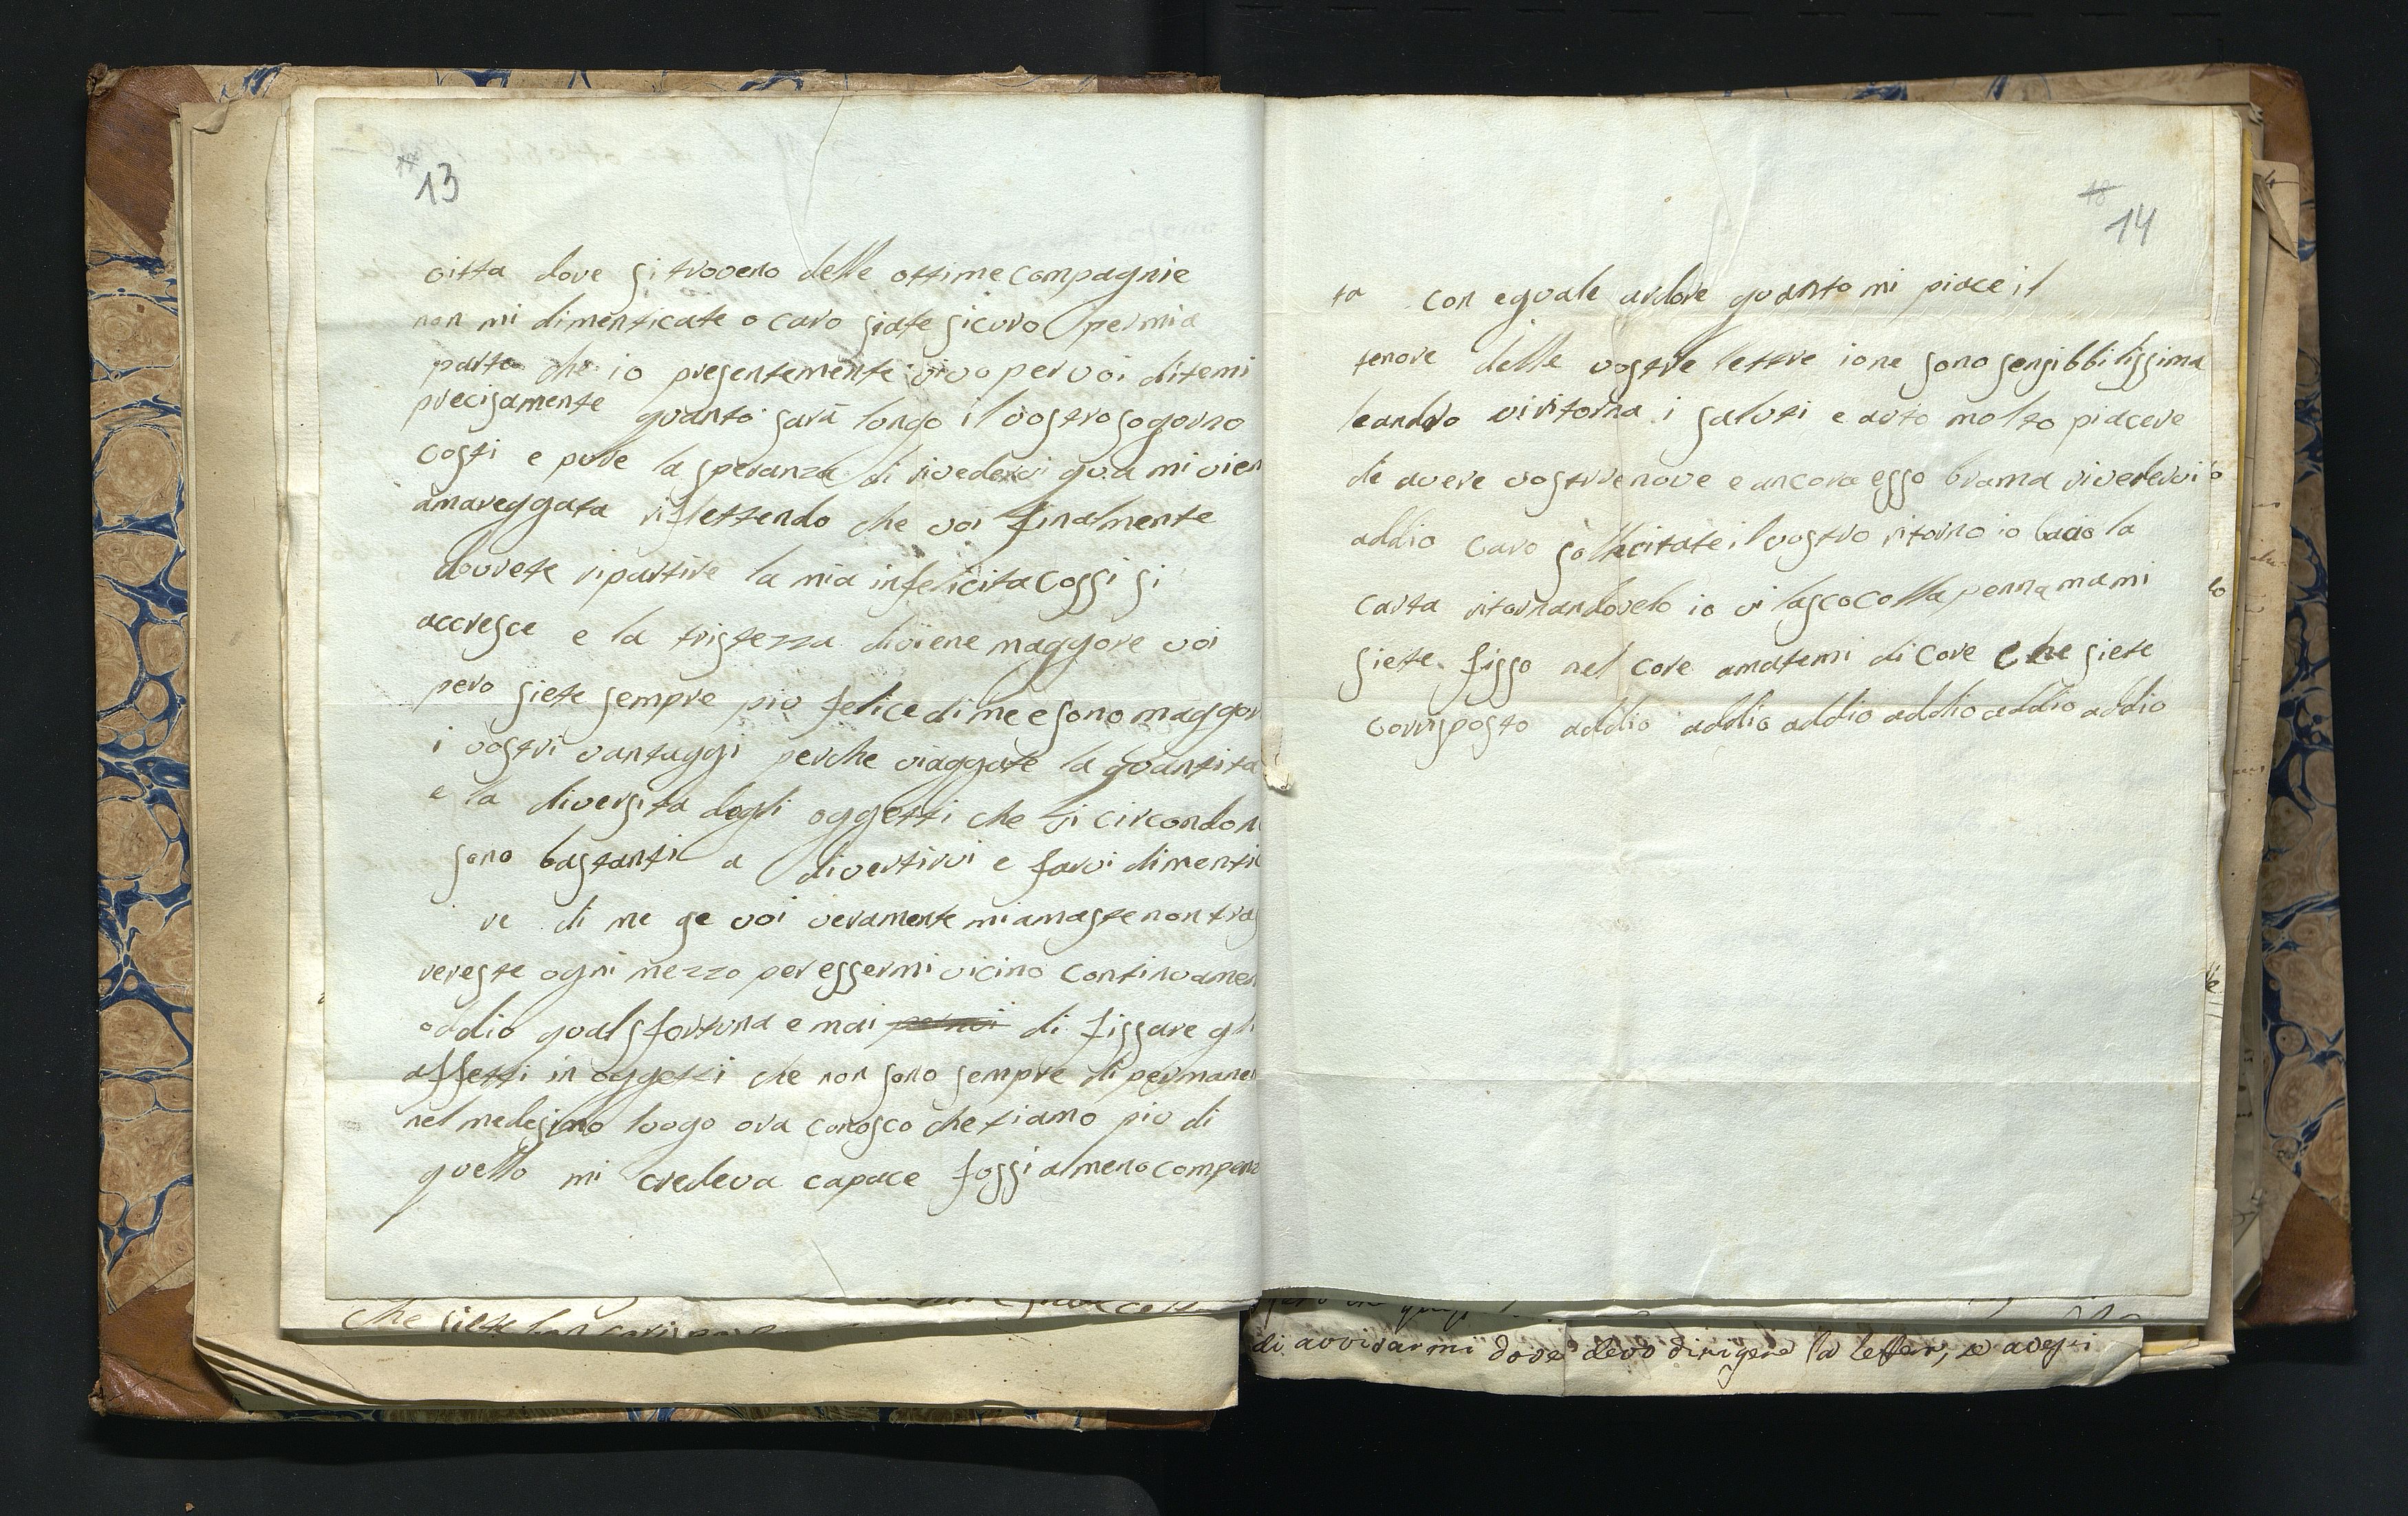 13
citta dove si troveno delle ottime compagnie
non mi dimenticate o caro siate sicuro per mia
parte che io presentemente vivo per voi ditemi
precisamente quanto sarà longo il vostro sogorno
costi e pure la speranza di rivedervi qua mi vien
amareggata riflettendo che voi finalmente
dovrete ripartire la mia infelicita cossi si
accresce e la tristezza diviene maggore voi
pero siete sempre piu felice di me e sono maggor
i vostri vantaggi perche viaggate la quantita
e la diversita degli oggetti che vi circondon
sono bastanti a divertirvi e farvi dimenti
re di me se voi veramente mi amaste non tras
vereste ogni mezzo per essermi vicino continuamen
oddio qual sfortuna e mai per noi di fissare gli
affetti in oggetti che non sono sempre di permanen
nel medesimo luogo ora conosco che ti amo piu di
quello mi credeva capace fossi almeno compens
che siete
18
14
ta con eguale ardore quanto mi piace il
tenore delle vostre lettre io ne sono sensibbilissima
leandro vi ritorna i saluti e auto molto piacere
di avere vostre nove e ancora esso brama rivedervi
addio caro sollicitate il vostro ritorno io bacio la
carta ritornandovelo io vi lasco colla penna ma mi
siete fisso nel core amatemi di core che siete
corrisposto addio addio addio addio addio addio
di avvisarmi dove devo dirigere la letter, se avessi